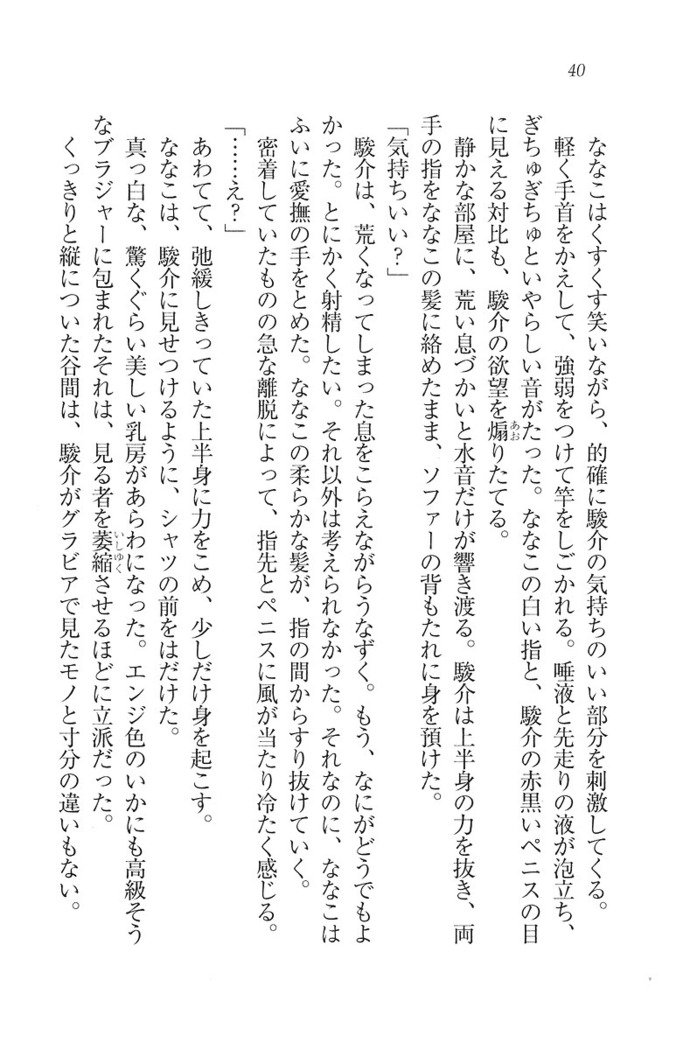 40
ななこはくすくす笑いながら、的確に駿介の気持ちのいい部分を刺激してくる。
軽く手首をかえして、強弱をつけて竿をしごかれる。唾液と先走りの液が泡立ち、
ぎちゅぎちゅといやらしい音がたった。ななこの白い指と、駿介の赤黒いペニスの目
に見える対比も、駿介の欲望を煽りたてる。
あお
静かな部屋に、荒い息づかいと水音だけが響き渡る。駿介は上半身の力を抜き、両
手の指をななこの髪に絡めたまま、ソファーの背もたれに身を預けた。
「気持ちいい？」
駿介は、荒くなってしまった息をこらえながらうなずく。もう、なにがどうでもよ
かった。とにかく射精したい。それ以外は考えられなかった。それなのに、ななこは
ふいに愛撫の手をとめた。ななこの柔らかな髪が、指の間からすり抜けていく。
密着していたものの急な離脱によって、指先とペニスに風が当たり冷たく感じる。
「……え？」
あわてて、弛緩しきっていた上半身に力をこめ、少しだけ身を起こす。
ななこは、駿介に見せつけるように、シャツの前をはだけた。
真っ白な、驚くぐらい美しい乳房があらわになった。エンジ色のいかにも高級そう
なブラジャーに包まれたそれは、見る者を萎縮させるほどに立派だった。
いしゅく
くっきりと縦についた谷間は、駿介がグラビアで見たモノと寸分の違いもない。